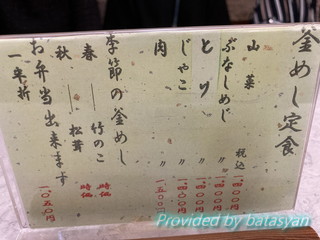 釜めし定食
山菜 税込 一、四〇〇円
ぶなしめじ 〃 一、四〇〇円
とり 〃 一、四〇〇円
じゃこ 〃 一、四〇〇円
肉 〃 一、五〇〇円
季節の釜めし
春 ― 竹のこ 時価
秋 ― 松茸 時価
お弁当出来ます
一半折 一、〇五〇円
Provided by batasyan